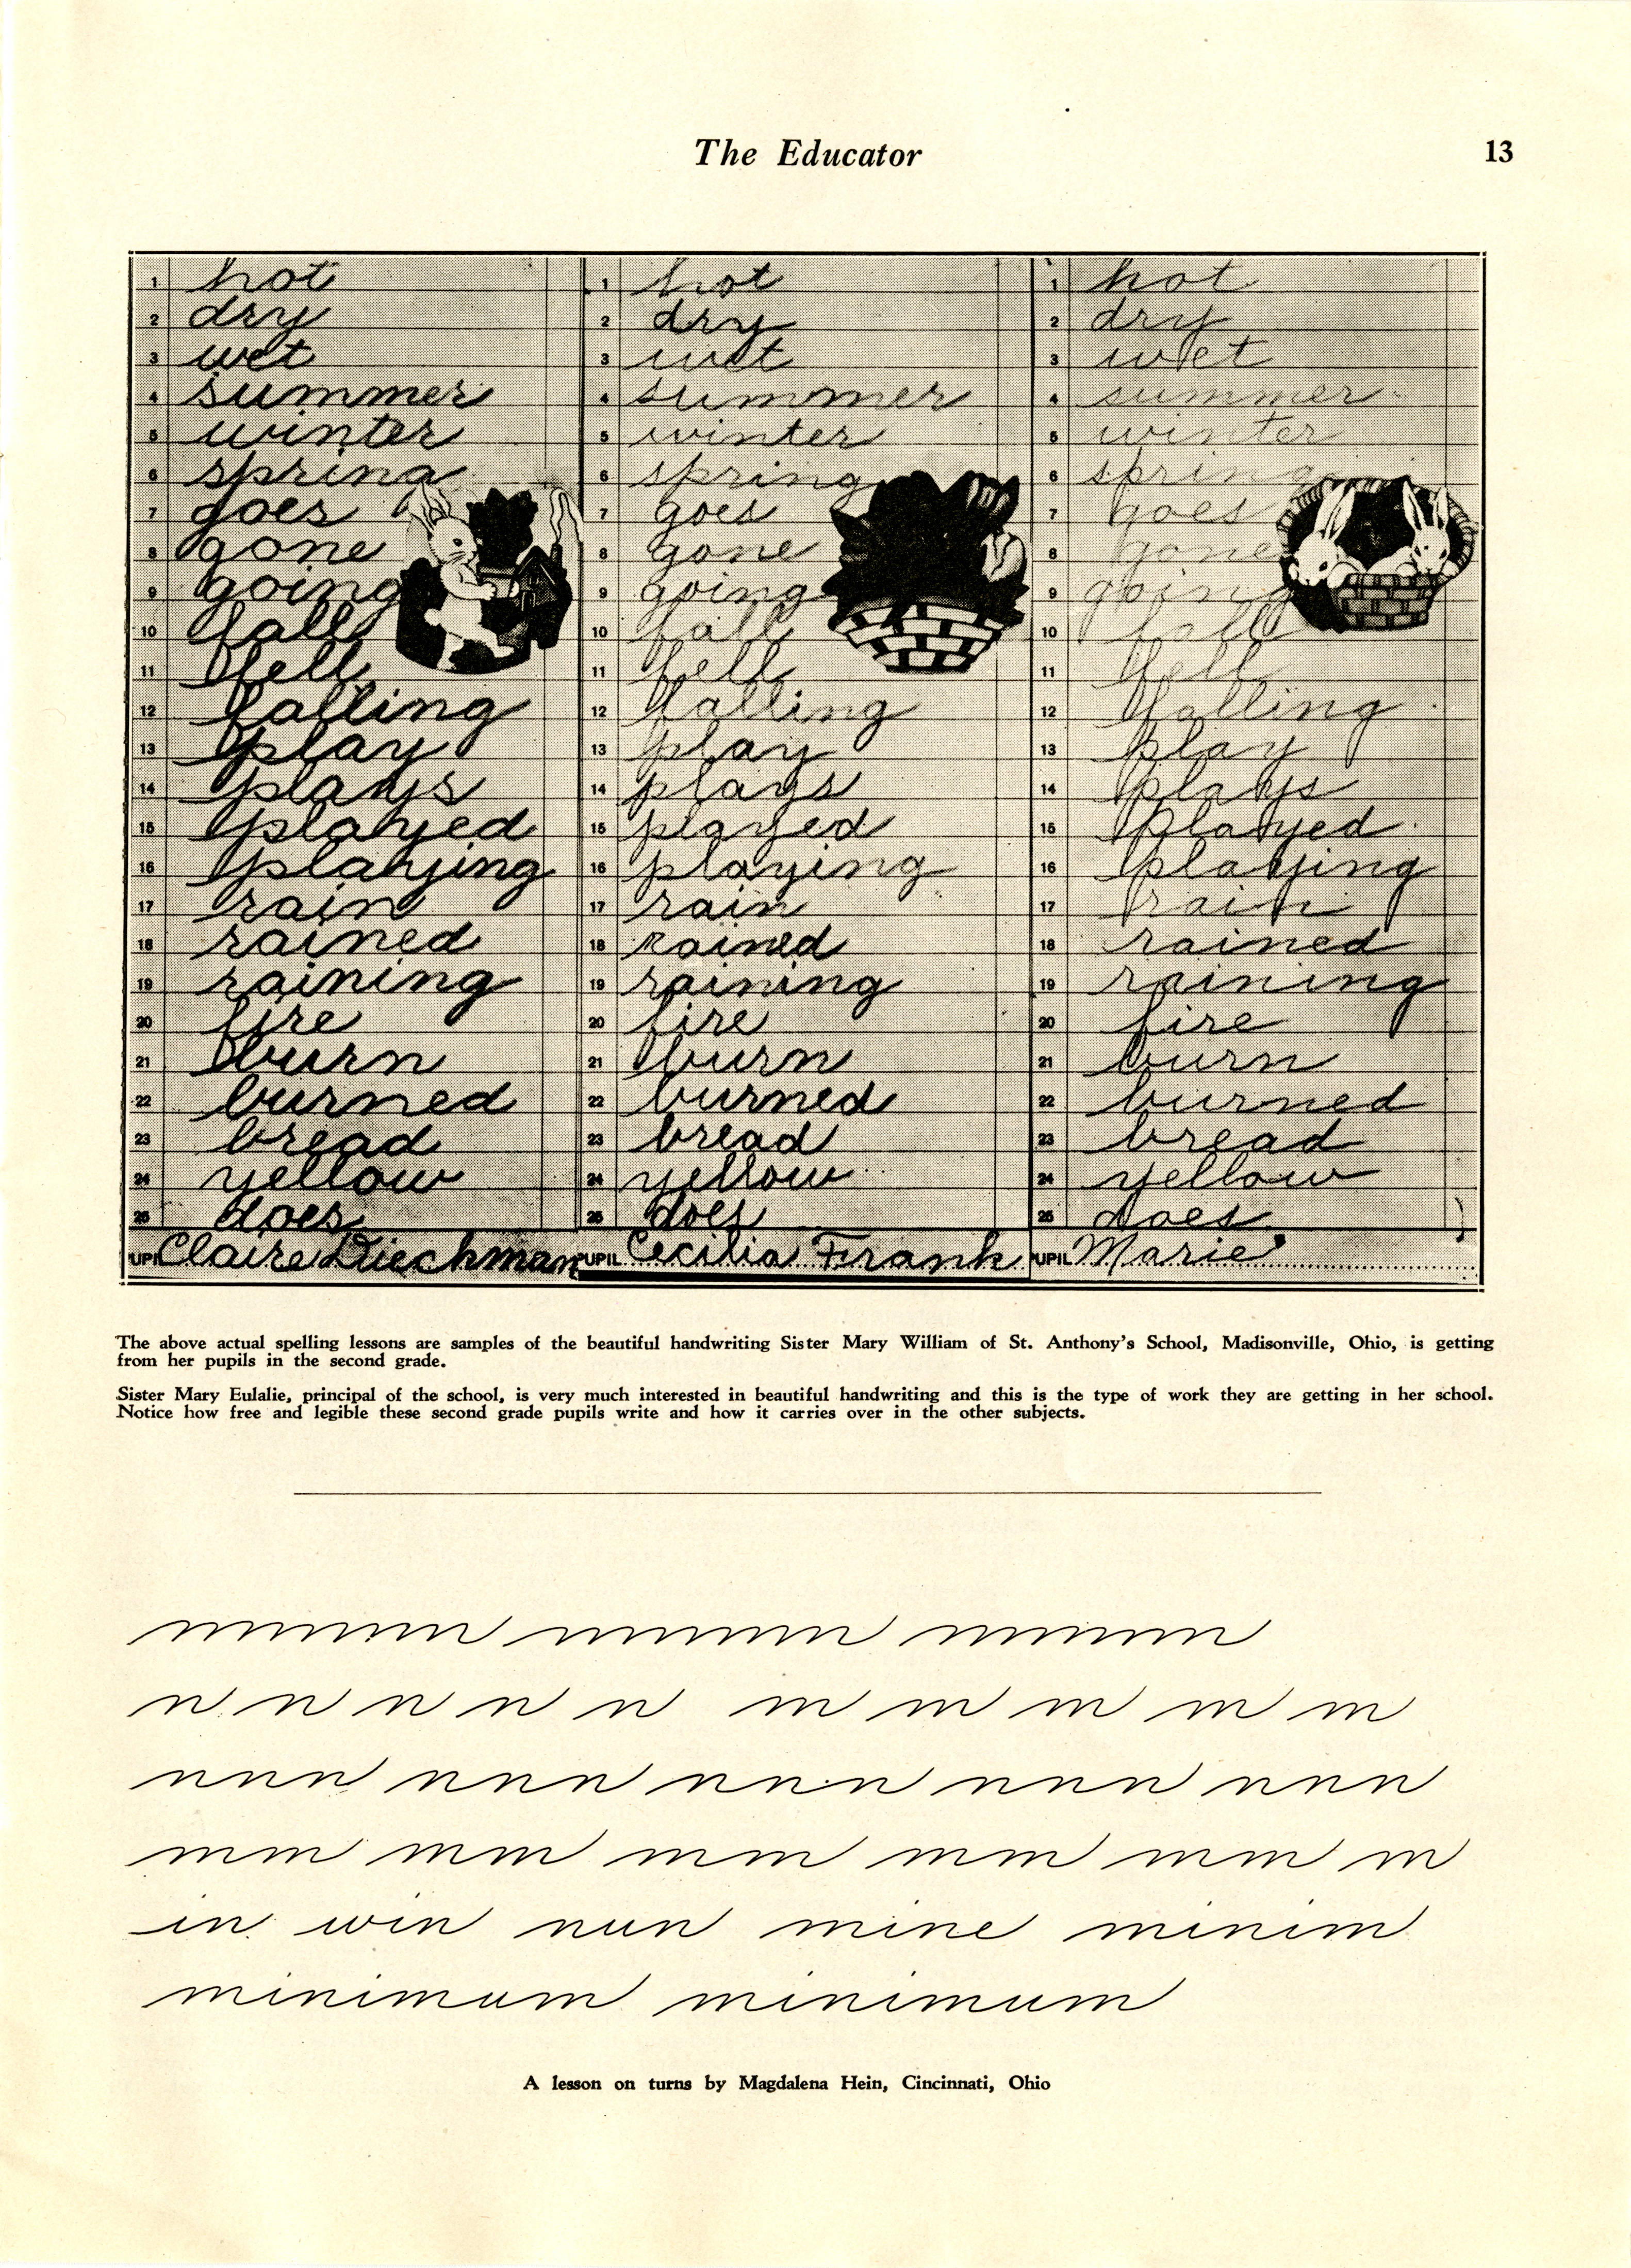 The Educator
13
1 hot
2 dry
3 wet
4 summer
5 winter
6 spring
7 goes
8 gone
9 going
10 fall
11 fell
12 falling
13 play
14 plays
15 played
16 playing
17 rain
18 rained
19 raining
20 fire
21 burn
22 burned
23 bread
24 yellow
25 does
PUPIL Claire Dieckman
1 hot
2 dry
3 wet
4 summer
5 winter
6 spring
7 goes
8 gone
9 going
10 fall
11 fell
12 falling
13 play
14 plays
15 played
16 playing
17 rain
18 rained
19 raining
20 fire
21 burn
22 burned
23 bread
24 yellow
25 does
PUPIL Cecilia Frank
1 hot
2 dry
3 wet
4 summer
5 winter
6 spring
7 goes
8 gone
9 going
10 fall
11 fell
12 falling
13 play
14 plays
15 played
16 playing
17 rain
18 rained
19 raining
20 fire
21 burn
22 burned
23 bread
24 yellow
25 does
PUPIL Marie
The above actual spelling lessons are samples of the beautiful handwriting Sister Mary William of St. Anthony's School, Madisonville, Ohio, is getting
from her pupils in the second grade.
Sister Mary Eulalie, principal of the school, is very much interested in beautiful handwriting and this is the type of work they are getting in her school.
Notice how free and legible these second grade pupils write and how it carries over in the other subjects.
n n n n n m m m m m
nnn nnn nnn nnn nnn
mm mm mm mm mm m
in win nun mine minim
minimum minimum
A lesson on turns by Magdalena Hein, Cincinnati, Ohio